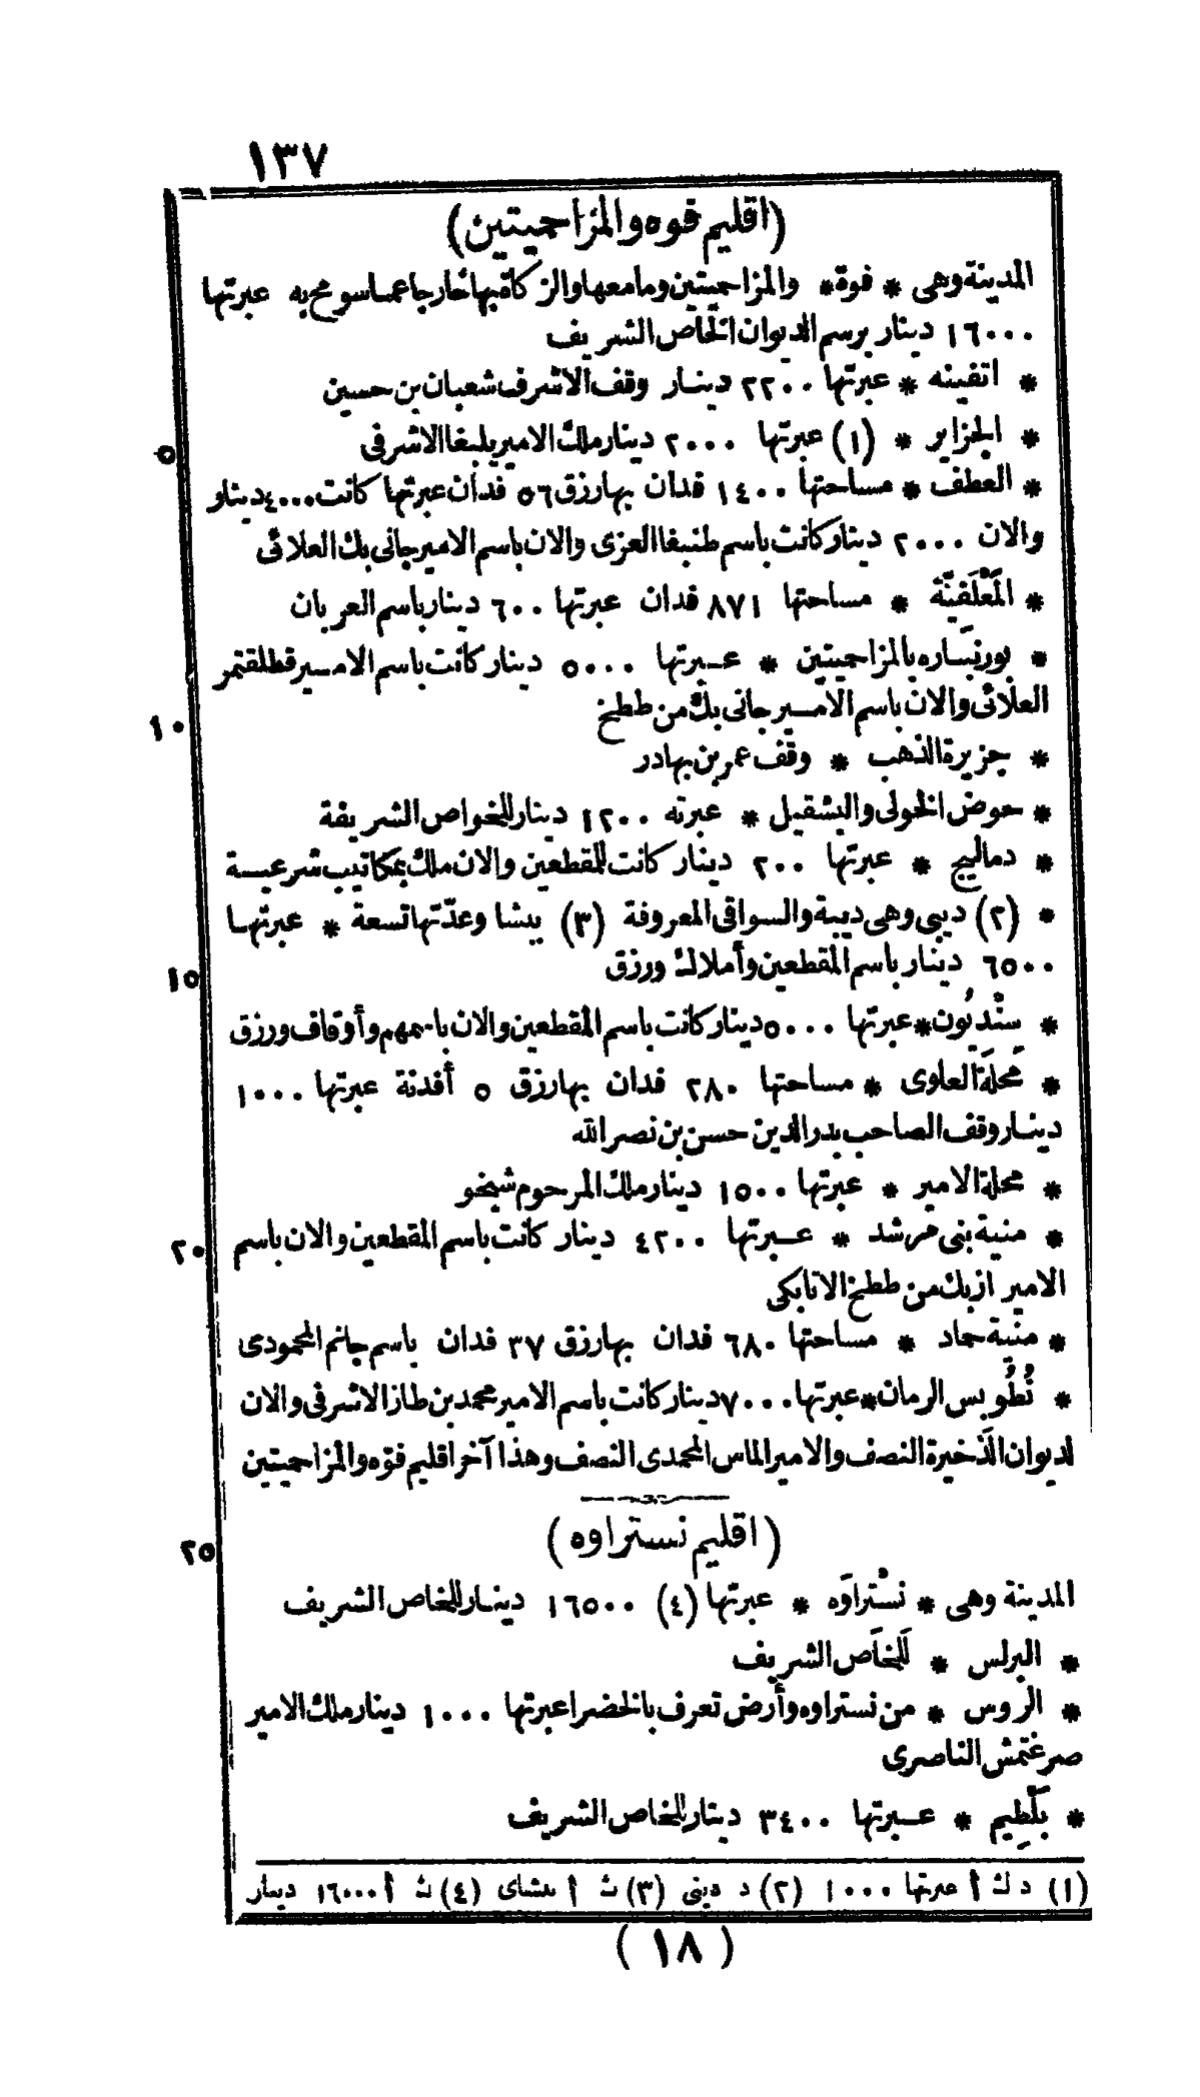 ١٣٧
(اقليم فوه والمزاحميتين)
المدينة وهى * فوة * والمزاحميتين وما معها والزكاة بها خارجا عما سومح به عبرتها
١٦٠٠٠ دينار برسم الديوان الخاص الشريف
* اتفينه * عبرتها ٢٢٠٠ دينار وقف الاشرف شعبان بن حسين
* الجزاير * (١) عبرتها ٢٠٠٠ دينار ملك الامير يلبغا الاشرفى
٥
* العطف * مساحتها ١٤٠٠ فدان بها رزق ٥٦ فدان عبرتها كانت ٤٠٠٠ دينار
والان ٢٠٠٠ دينار كانت باسم طنبغا العزى والان باسم الامير جانى بك العلائى
* المَعْلَفِيّة * مساحتها ٨٧١ فدان عبرتها ٦٠٠ دينار باسم العربان
* بورنبَساره بالمزاحميتين * عبرتها ٥٠٠٠ دينار كانت باسم الامير قطلقتمر
العلائى والان باسم الامير جانى بك من ططخ
١٠
* جزيرة الذهب * وقف عمر بن بهادر
* حوض الخولى والبشقيل * عبرته ١٢٠٠ دينار للخواص الشريفة
* دماليج * عبرتها ٢٠٠ دينار كانت للمقطعين والان ملك بمكاتيب شرعية
* (٢) ديبى وهى ديبة والسواقى المعروفة (٣) ببشا وعدّتها تسعة * عبرتها
٦٥٠٠ دينار باسم المقطعين وأملاك ورزق
١٥
* سنْديُون * عبرتها ٥٠٠٠ دينار كانت باسم المقطعين والان باسمهم وأوقاف ورزق
* مَحلَة العلوى * مساحتها ٢٨٠ فدان بها رزق ٥ أفدنة عبرتها ١٠٠٠
دينار وقف الصاحب بدر الدين حسن بن نصر الله
* محلة الامير * عبرتها ١٥٠٠ دينار ملك المرحوم شيخو
* منية بنى مرشد * عبرتها ٤٢٠٠ دينار كانت باسم المقطعين والان باسم
٢٠
الامير ازبك من ططخ الاتابكى
* منية حماد * مساحتها ٦٨٠ فدان بها رزق ٣٧ فدان باسم جانم المحمودى
* نُطُوبس الرمان * عبرتها ٧٠٠٠ دينار كانت باسم الامير محمد بن طاز الاشرفى والان
لديوان الذخيرة النصف والامير الماس المحمدى النصف وهذا آخر اقليم فوّه والمزاحميتين
(اقليم نستراوه)
٢٥
المدينة وهى * نسْتراوَه * عبرتها (٤) ١٦٥٠٠ دينار للخاص الشريف
* البرلس * للخاص الشريف
* الروس * من نستراوه وأرض تعرف بالخضرا عبرتها ١٠٠٠ دينار ملك الامير
صرغتمش الناصرى
* بَلْطِيم * عبرتها ٣٤٠٠ دينار للخاص الشريف
(١) د ك أ عبرتها ١٠٠٠ (٢) د دينى (٣) ث أ بىشاى (٤) ث أ ١٦٠٠٠ دينار
(١٨)